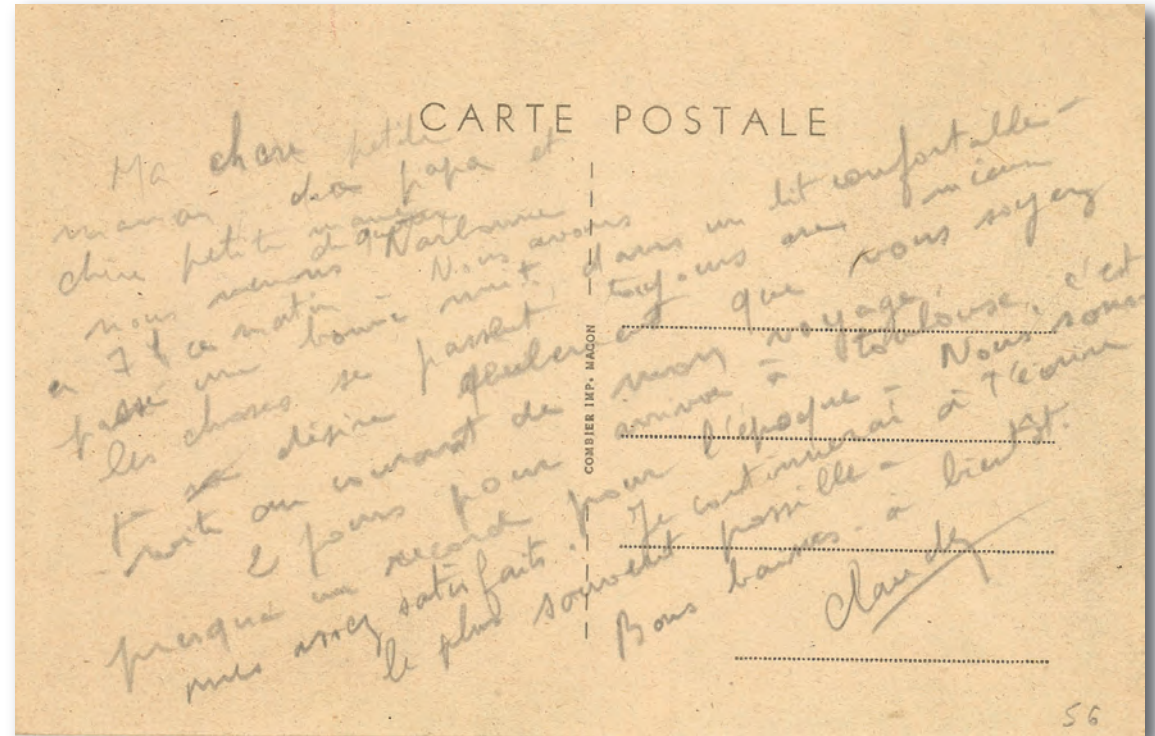 CARTE POSTALE
Ma chère petite
maman, cher papa et
chère petite
nous venons de quitter Narbonne
a 7 h ce matin. Nous avons
passé une bonne nuit, dans un lit confortable -
les choses se passent toujours au mieux
je désire seulement que vous soyez
vite au courant de mon voyage,
2 jours pour arriver à toulouse, c'est
presque un record pour l'époque - Nous som
mes assez satisfaits. Je continuerai à t'écrire
le plus souvent possible -
Bons baisers - a bientôt.
COMBIER IMP. MACON
56